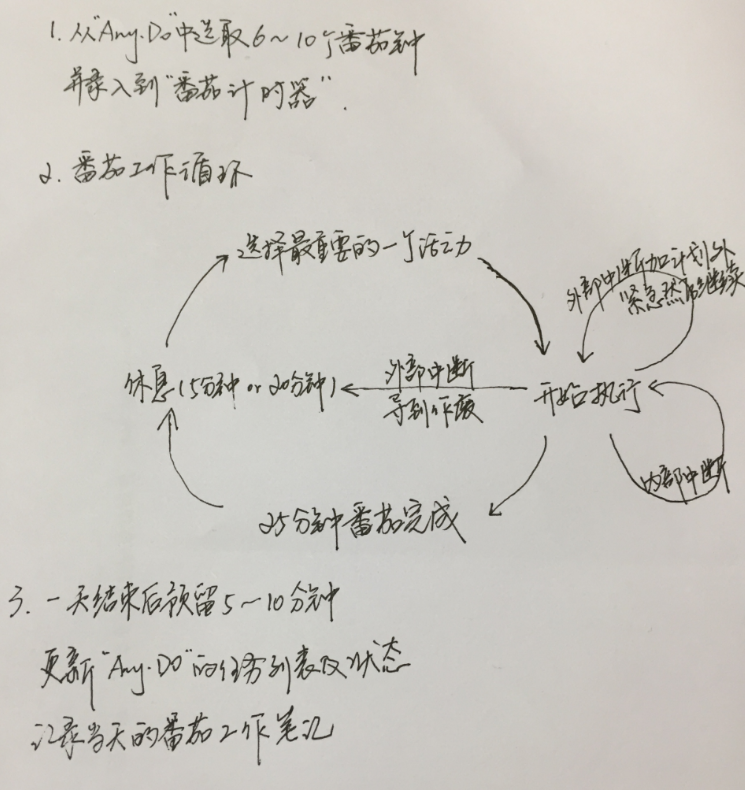 1. 从"Any.Do"中选取6～10个番茄钟
并录入到"番茄计时器".
2. 番茄工作循环
选择最重要的一个活动
外部中断加计划外
紧急然后继续
休息(5分钟 or 20分钟)
外部中断
导到作废
开始执行
内部中断
25分钟番茄完成
3. 一天结束后预留5～10分钟
更新"Any.DO"的任务列表及状态
记录当天的番茄工作笔记